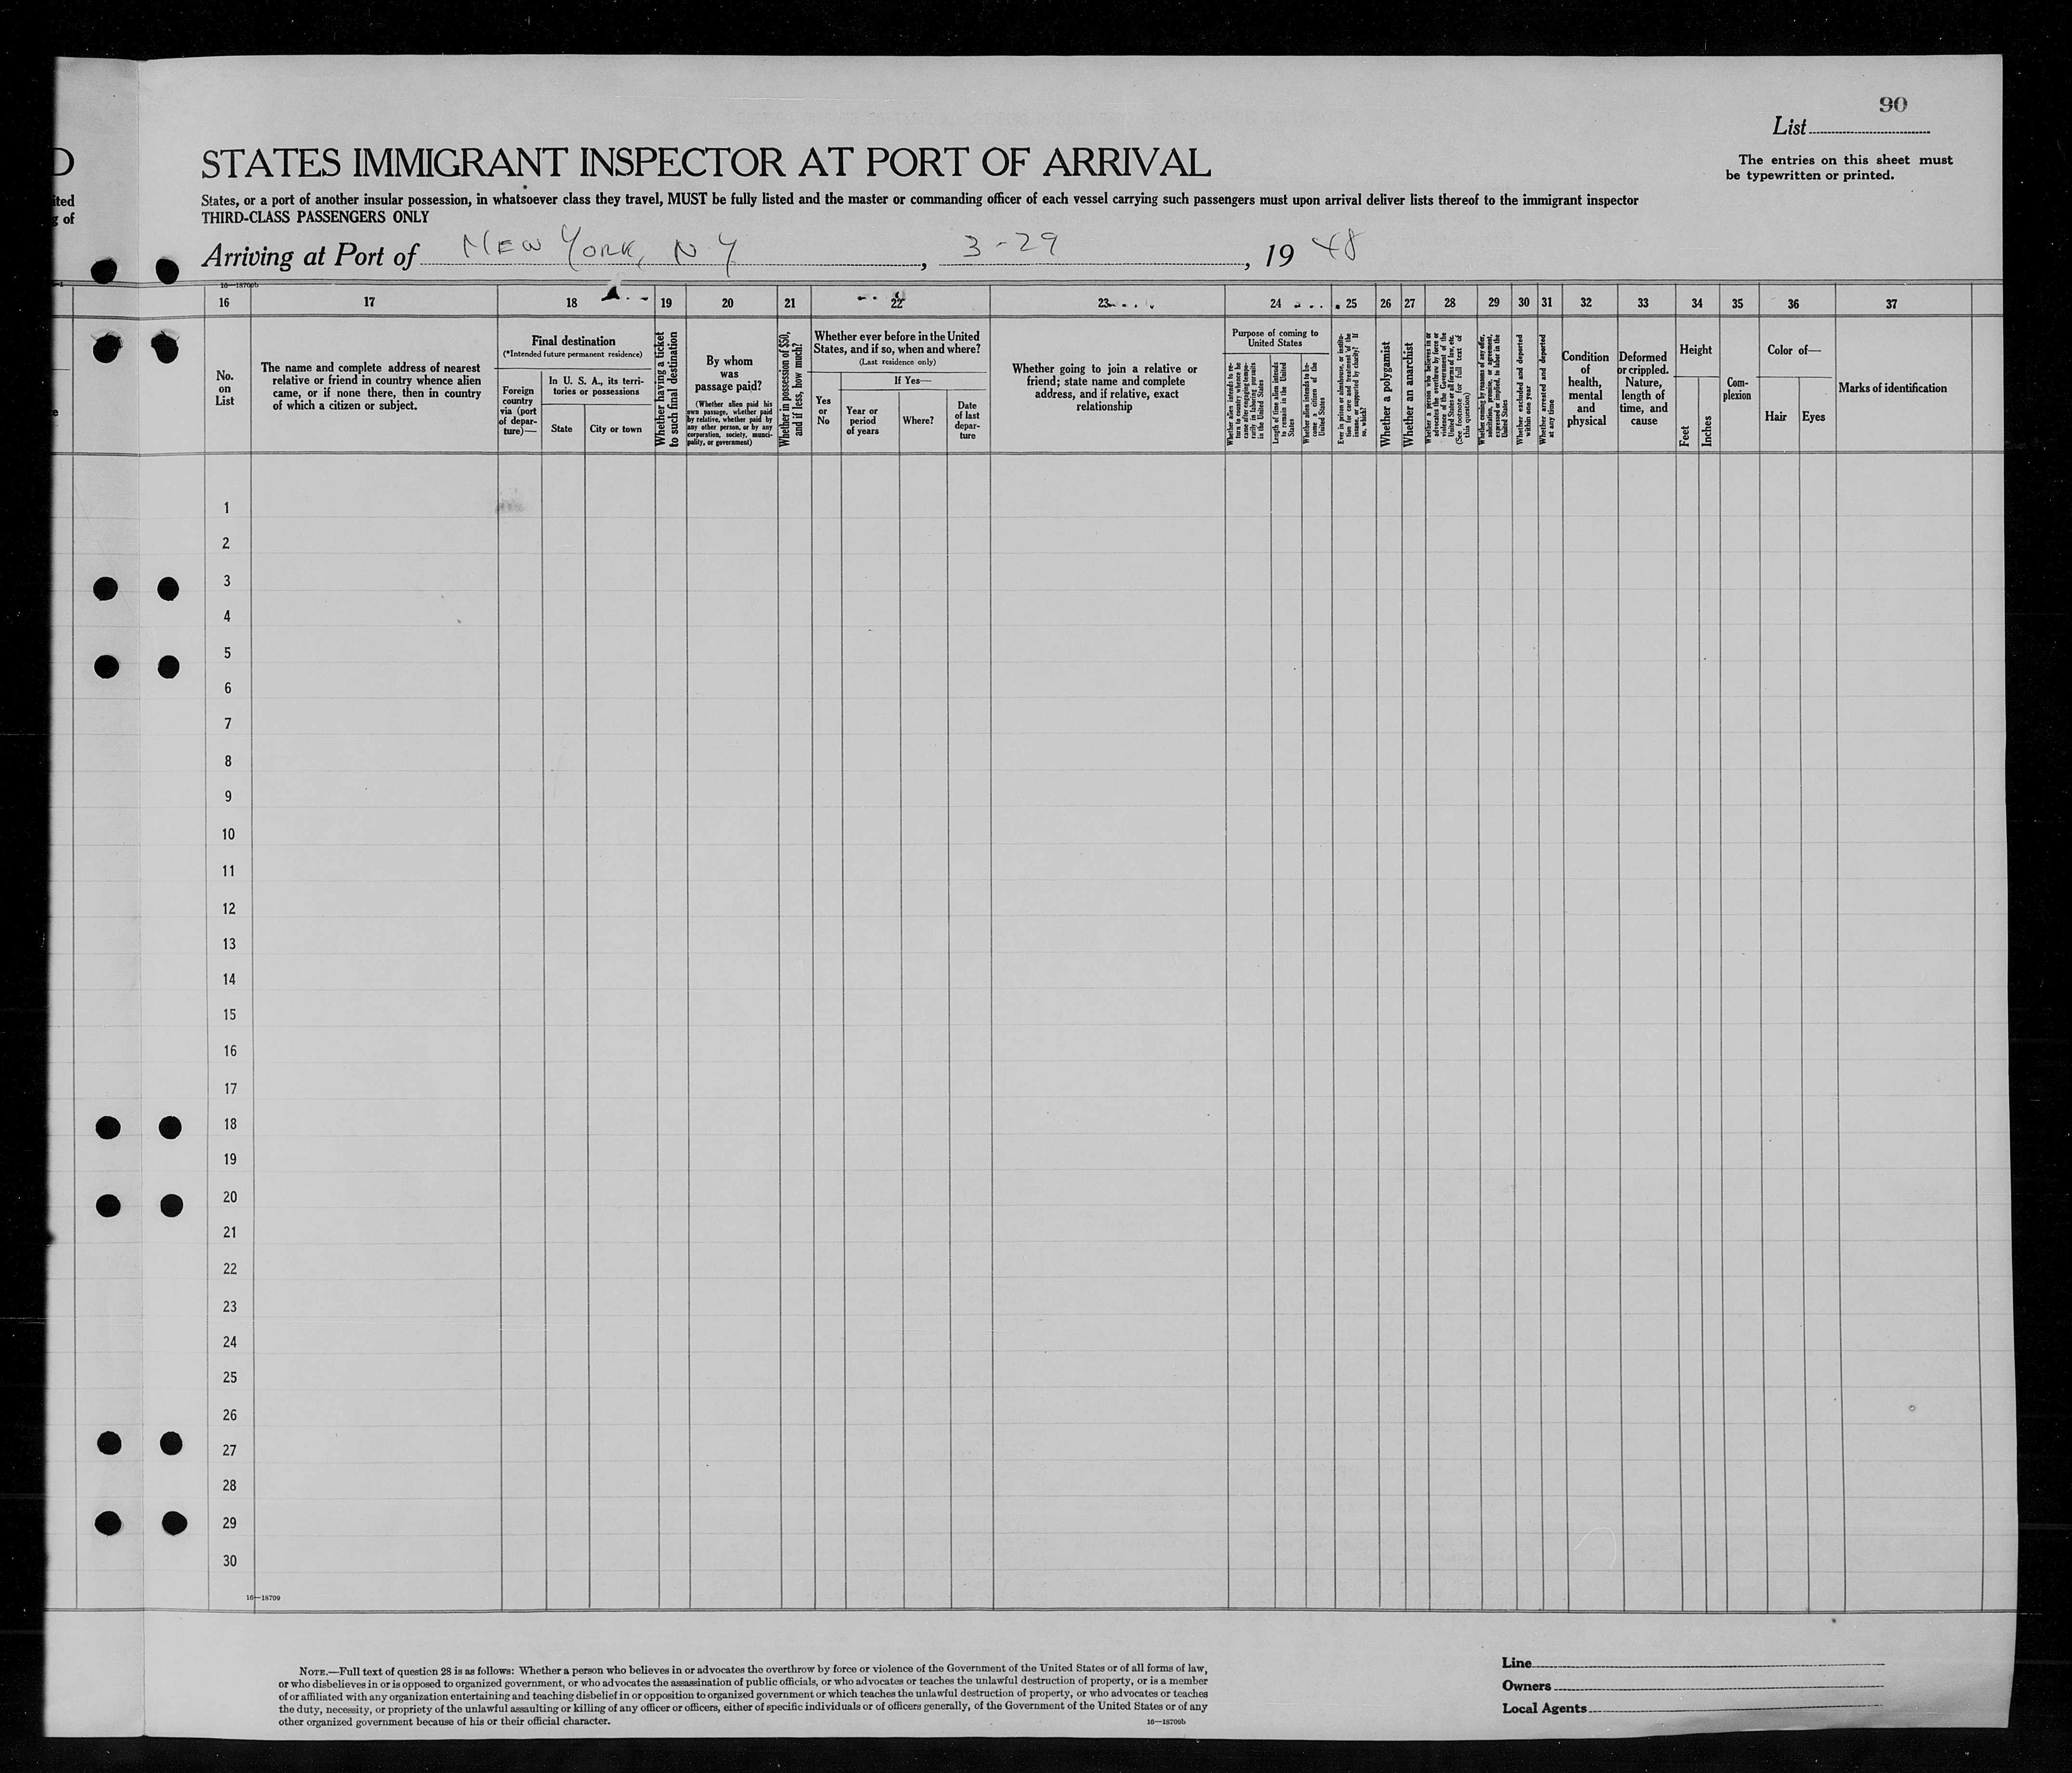 90
List
The entries on this sheet must
be typewritten or printed.
D
STATES IMMIGRANT INSPECTOR AT PORT OF ARRIVAL
ited
g of
States, or a port of another insular possession, in whatsoever class they travel, MUST be fully listed and the master or commanding officer of each vessel carrying such passengers must upon arrival deliver lists thereof to the immigrant inspector
THIRD-CLASS PASSENGERS ONLY
Arriving at Port of NEW YORK, NY, 3-29, 19 48
16—18709b
16 17 18 19 20 21 22 23 24 25 26 27 28 29 30 31 32 33 34 35 36 37
No.
on
List
The name and complete address of nearest
relative or friend in country whence alien
came, or if none there, then in country
of which a citizen or subject.
Final destination
(*Intended future permanent residence)
Foreign
country
via (port
of depar-
ture)—
In U. S. A., its terri-
tories or possessions
State
City or town
Whether having a ticket
to such final destination
By whom
was
passage paid?
(Whether alien paid his
own passage, whether paid
by relative, whether paid by
any other person, or by any
corporation, society, munici-
pality, or government)
Whether in possession of $50,
and if less, how much?
Whether ever before in the United
States, and if so, when and where?
(Last residence only)
Yes
or
No
If Yes—
Year or
period
of years
Where?
Date
of last
depar-
ture
Whether going to join a relative or
friend; state name and complete
address, and if relative, exact
relationship
Purpose of coming to
United States
Whether alien intends to re-
turn to country whence he
came after engaging tempo-
rarily in laboring pursuits
in the United States
Length of time alien intends
to remain in the United
States
Whether alien intends to be-
come a citizen of the
United States
Ever in prison or almshouse, or institu-
tion for care and treatment of the
insane, or supported by charity? If
so, which?
Whether a polygamist
Whether an anarchist
Whether a person who believes in or
advocates the overthrow by force or
violence of the Government of the
United States or all forms of law, etc.
(See footnote for full text of
this question)
Whether coming by reasons of any offer,
solicitation, promise, or agreement,
expressed or implied, to labor in the
United States
Whether excluded and deported
within one year
Whether arrested and deported
at any time
Condition
of
health,
mental
and
physical
Deformed
or crippled.
Nature,
length of
time, and
cause
Height
Feet
Inches
Com-
plexion
Color of—
Hair
Eyes
Marks of identification
1
2
3
4
5
6
7
8
9
10
11
12
13
14
15
16
17
18
19
20
21
22
23
24
25
26
27
28
29
30
16—18709
NOTE.—Full text of question 28 is as follows: Whether a person who believes in or advocates the overthrow by force or violence of the Government of the United States or of all forms of law,
or who disbelieves in or is opposed to organized government, or who advocates the assassination of public officials, or who advocates or teaches the unlawful destruction of property, or is a member
of or affiliated with any organization entertaining and teaching disbelief in or opposition to organized government or which teaches the unlawful destruction of property, or who advocates or teaches
the duty, necessity, or propriety of the unlawful assaulting or killing of any officer or officers, either of specific individuals or of officers generally, of the Government of the United States or of any
other organized government because of his or their official character.
16—18709b
Line
Owners
Local Agents